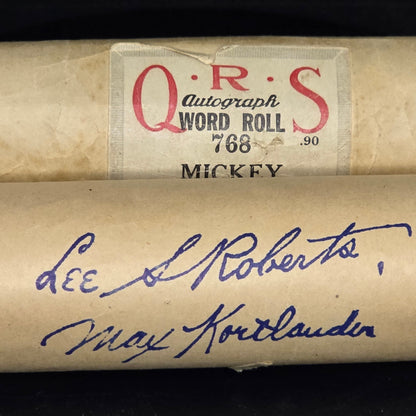 Q·R·S
Autograph
WORD ROLL
768 .90
MICKEY
Lee S Roberts,
Max Kortlander